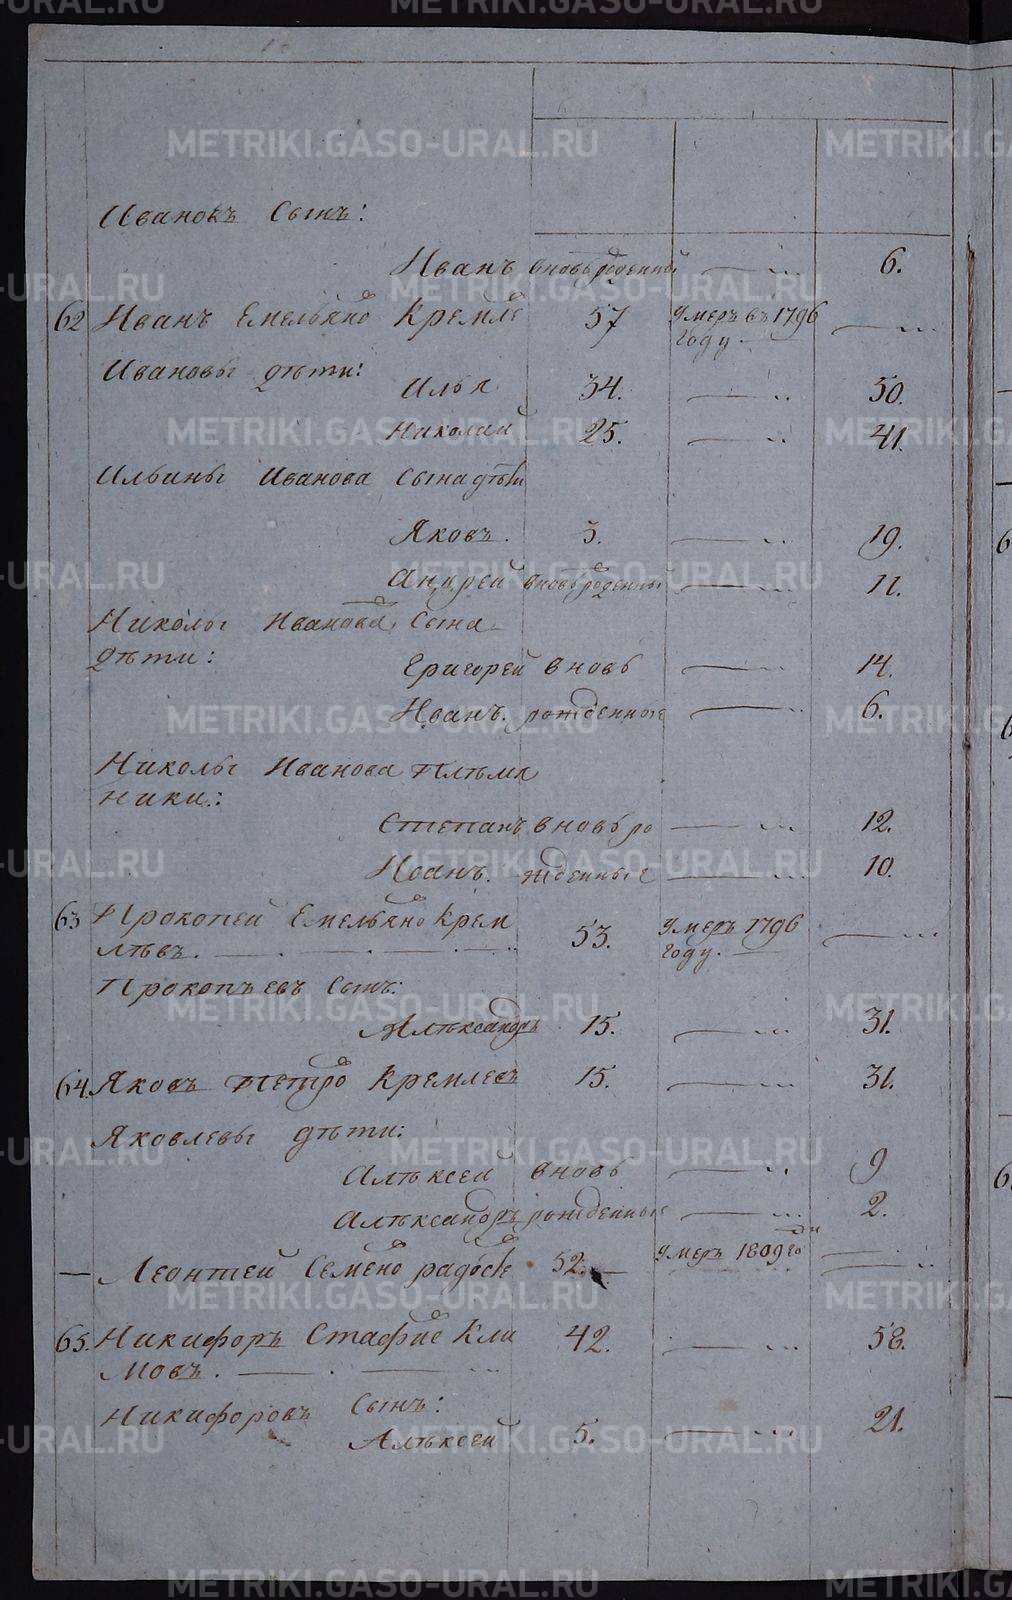 Ивановъ Сынъ:
Иванъ вновьрожденной — 6.
62 Иванъ Емельяно Кремле 57 Умеръ въ 1796 —
году.
Ивановы дѣти:
Илья 34. — 50.
Николай 25. — 41.
Ильины Иванова Сына дѣти
Яковъ. 3. — 19.
Андрей вновьрожденный — 11.
Николы Иванова Сына
дѣти:
Григорей вновь — 14.
Иванъ. рожденные — 6.
Николы Иванова Плѣмя
ники:
Степанъ вновь ро — 12.
Иванъ. жденные — 10.
63 Прокопей Емельяно Крем 53. Умеръ 1796 —
лѣвъ. — году.
Прокопьевъ Сынъ:
Алѣксандръ 15. — 31.
64. Яковъ Петро Кремлевъ 15. — 31.
Яковлевы дѣти:
Алѣксей вновь — 9
Алѣксандръ рожденные — 2.
— Леонтей Семено 52. — Умеръ 1809 го —
ду
65. Никифоръ Кли 42. — 58.
мовъ.
Никифоровъ Сынъ:
Алѣксей 5. — 21.
METRIKI.GASO-URAL.RU